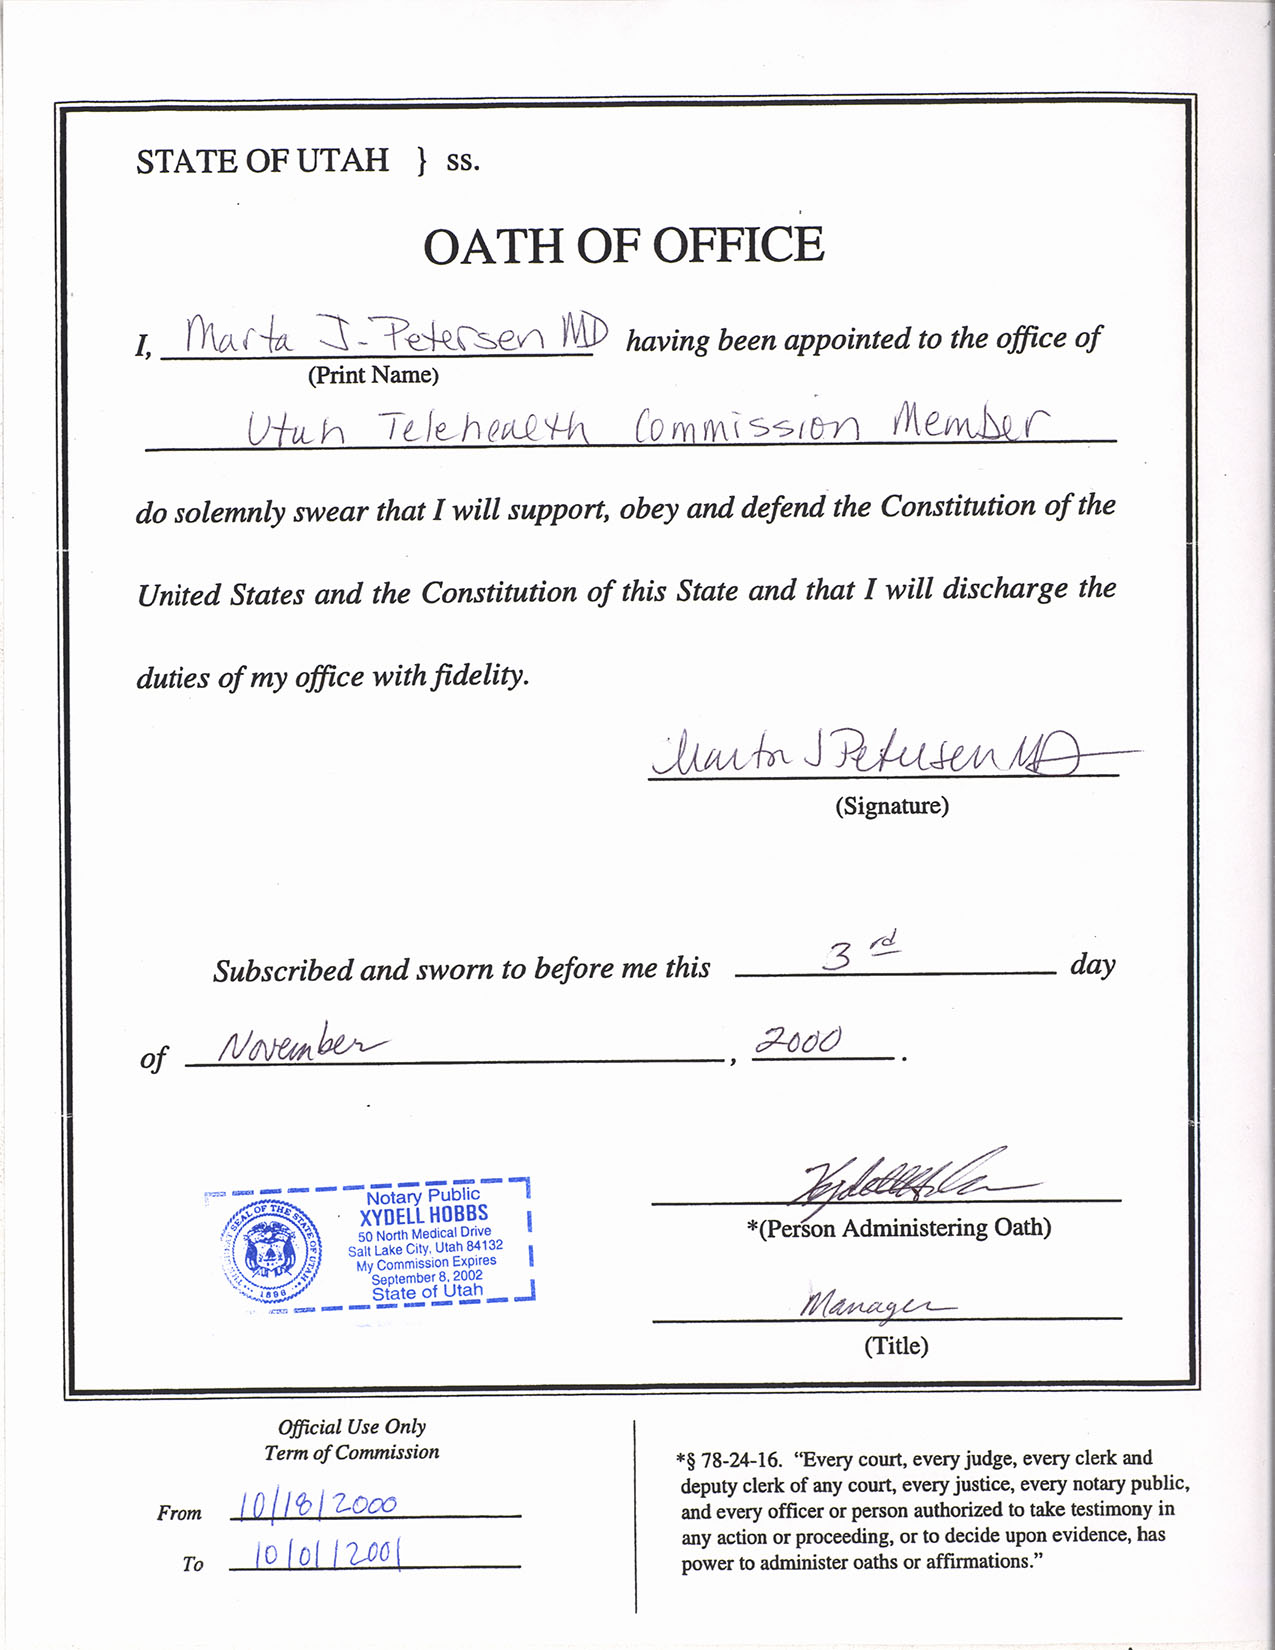 STATE OF UTAH } ss.
OATH OF OFFICE
I, Marta J. Petersen MD having been appointed to the office of
(Print Name)
Utah Telehealth Commission Member
do solemnly swear that I will support, obey and defend the Constitution of the
United States and the Constitution of this State and that I will discharge the
duties of my office with fidelity.
Marta J Petersen MD
(Signature)
Subscribed and sworn to before me this 3rd day
of November, 2000.
Notary Public
XYDELL HOBBS
50 North Medical Drive
Salt Lake City, Utah 84132
My Commission Expires
September 8, 2002
State of Utah
SEAL OF THE STATE OF UTAH
1896
*(Person Administering Oath)
Manager
(Title)
Official Use Only
Term of Commission
From 10/18/2000
To 10/01/2001
*§ 78-24-16. “Every court, every judge, every clerk and
deputy clerk of any court, every justice, every notary public,
and every officer or person authorized to take testimony in
any action or proceeding, or to decide upon evidence, has
power to administer oaths or affirmations.”